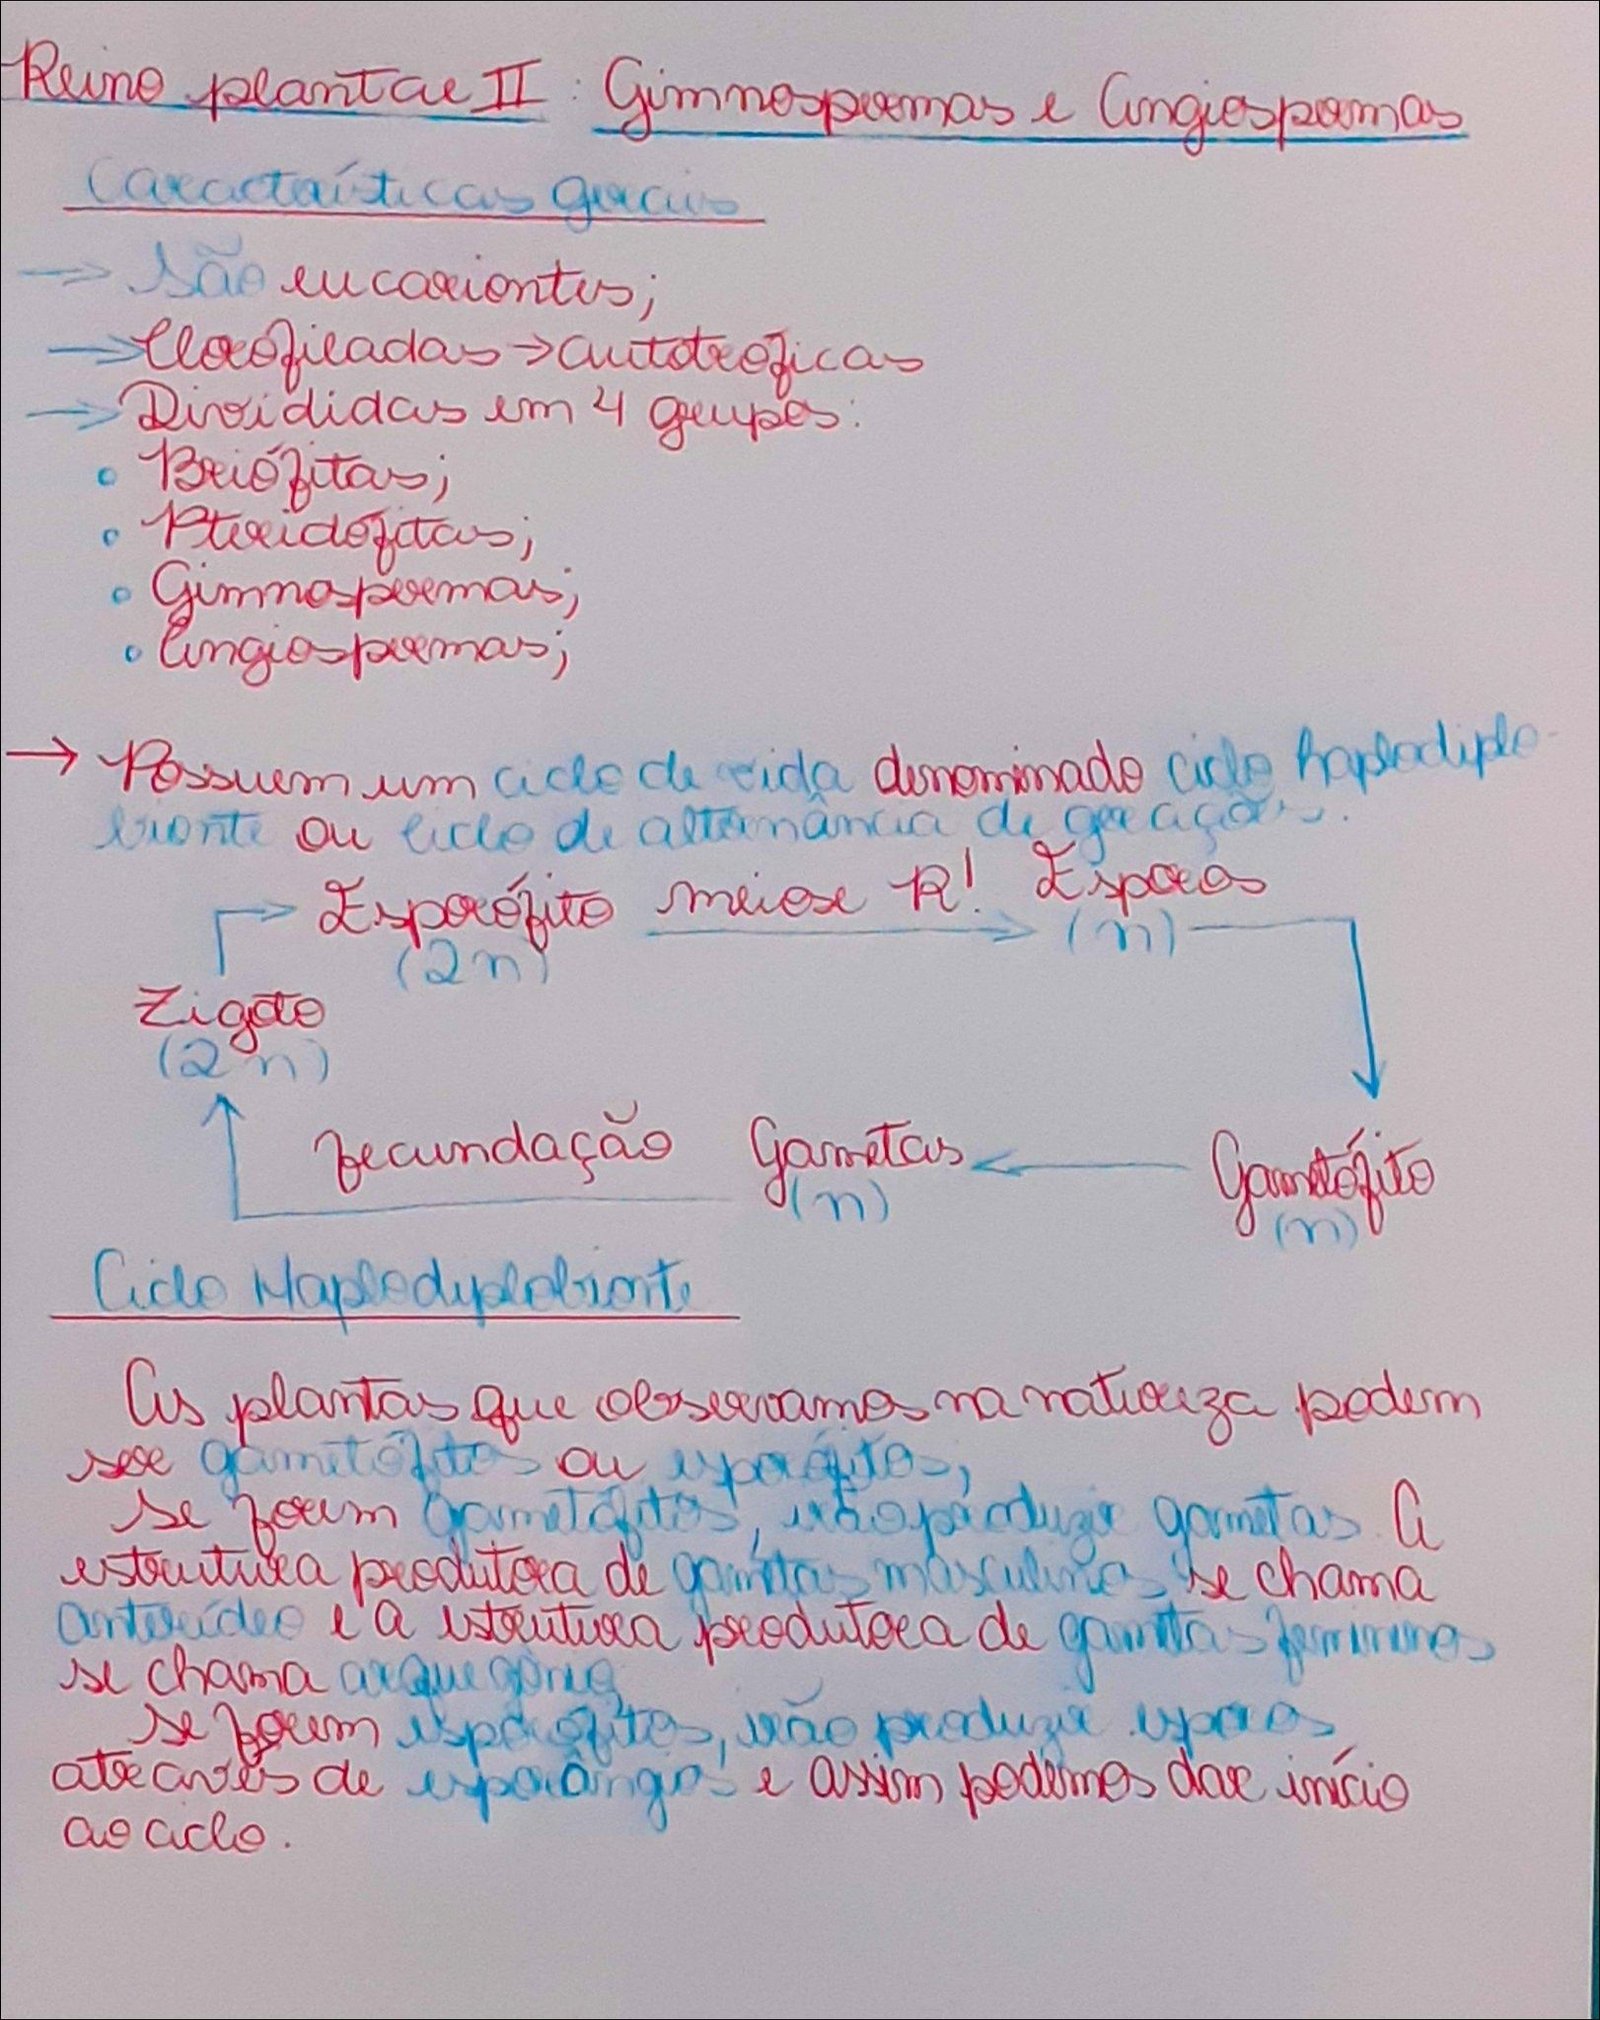 Reino plantae II: Gimnospermas e Angiospermas
Características gerais
→ São eucariontes;
→ Clorofiladas → autotróficas
→ Divididas em 4 grupos:
• Briófitas;
• Pteridófitas;
• Gimnospermas;
• Angiospermas;
→ Possuem um ciclo de vida denominado ciclo haplodiplo-
bionte ou ciclo de alternância de gerações.
Esporófito meiose R! Esporos
(2n) (n)
Zigoto
(2n)
fecundação Gametas Gametófito
(n) (n)
Ciclo Haplodyplobionte
As plantas que observamos na natureza podem
ser gametófitos ou esporófitos;
Se forem gametófitos, irão produzir gametas. A
estrutura produtora de gametas masculinos se chama
anterídeo e a estrutura produtora de gametas femininos
se chama arquegônio
Se forem esporófitos, irão produzir esporos
através de esporângios e assim podemos dar início
ao ciclo.